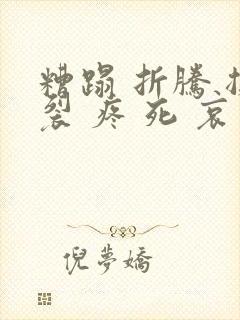 糟蹋 折騰
裂 疼 死 哀
倪夢嬌